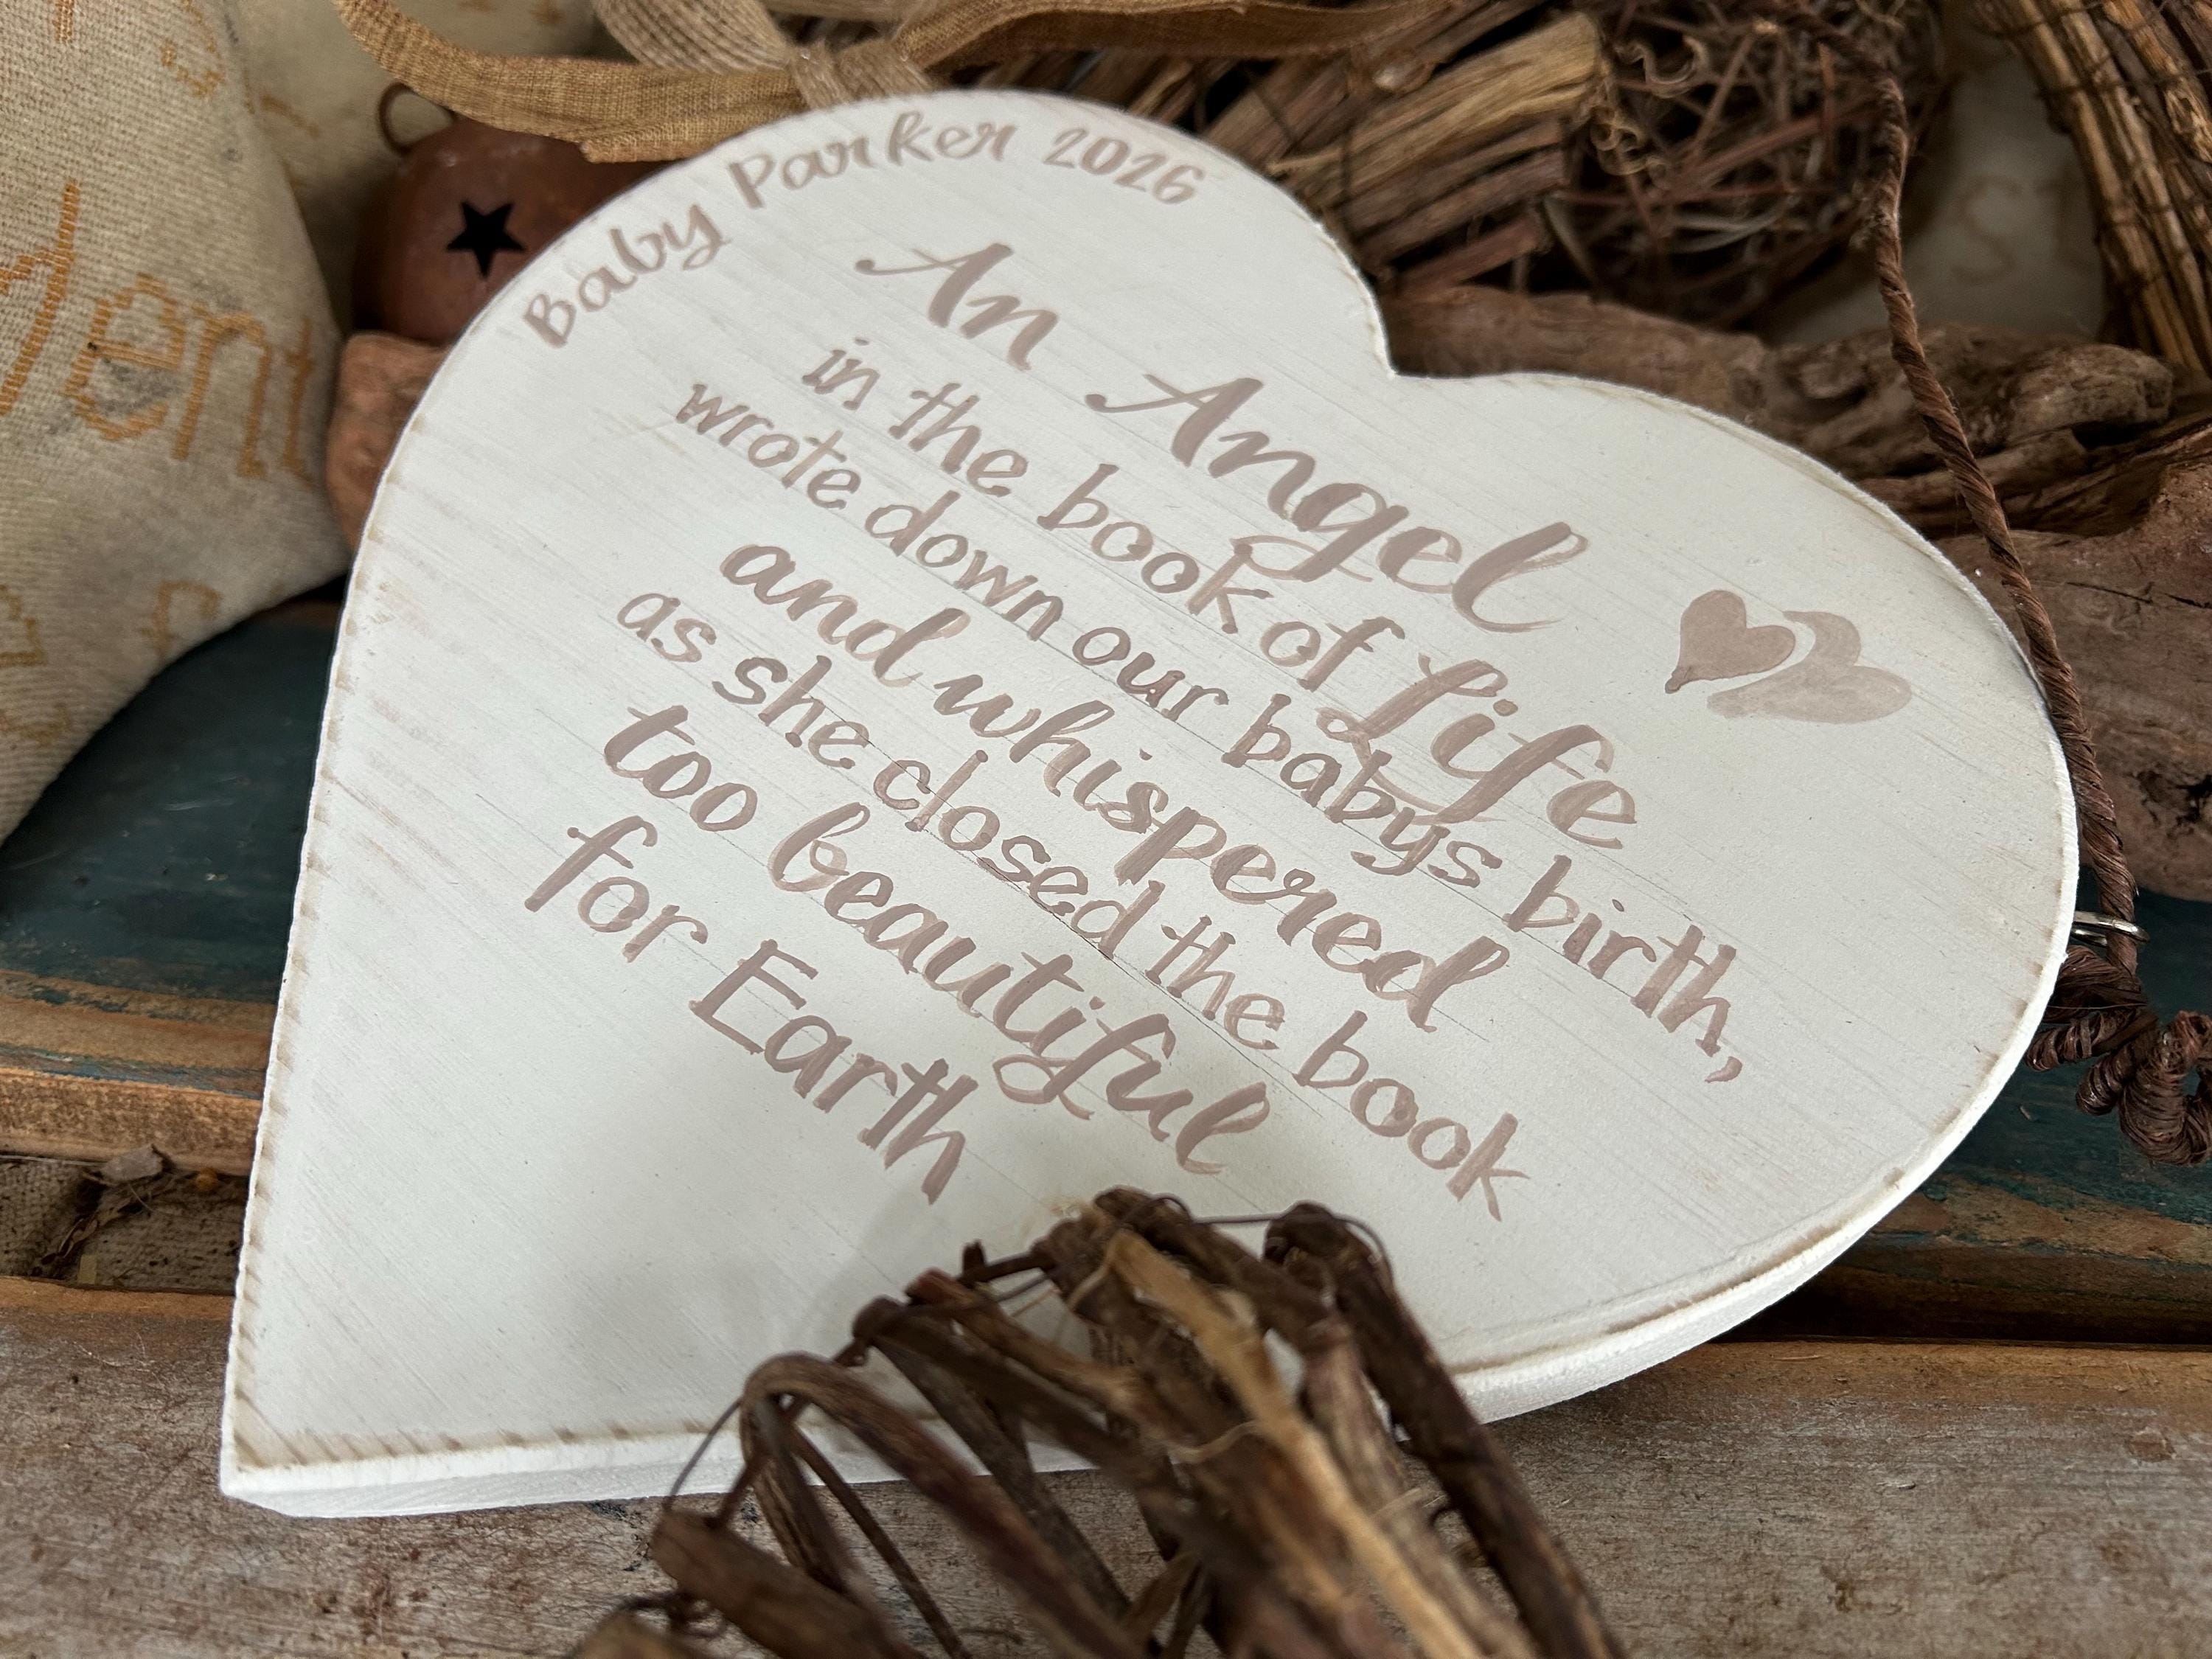 Baby Parker 2026
An Angel
in the book of Life
wrote down our babys birth,
and whispered
as she closed the book
too beautiful
for Earth